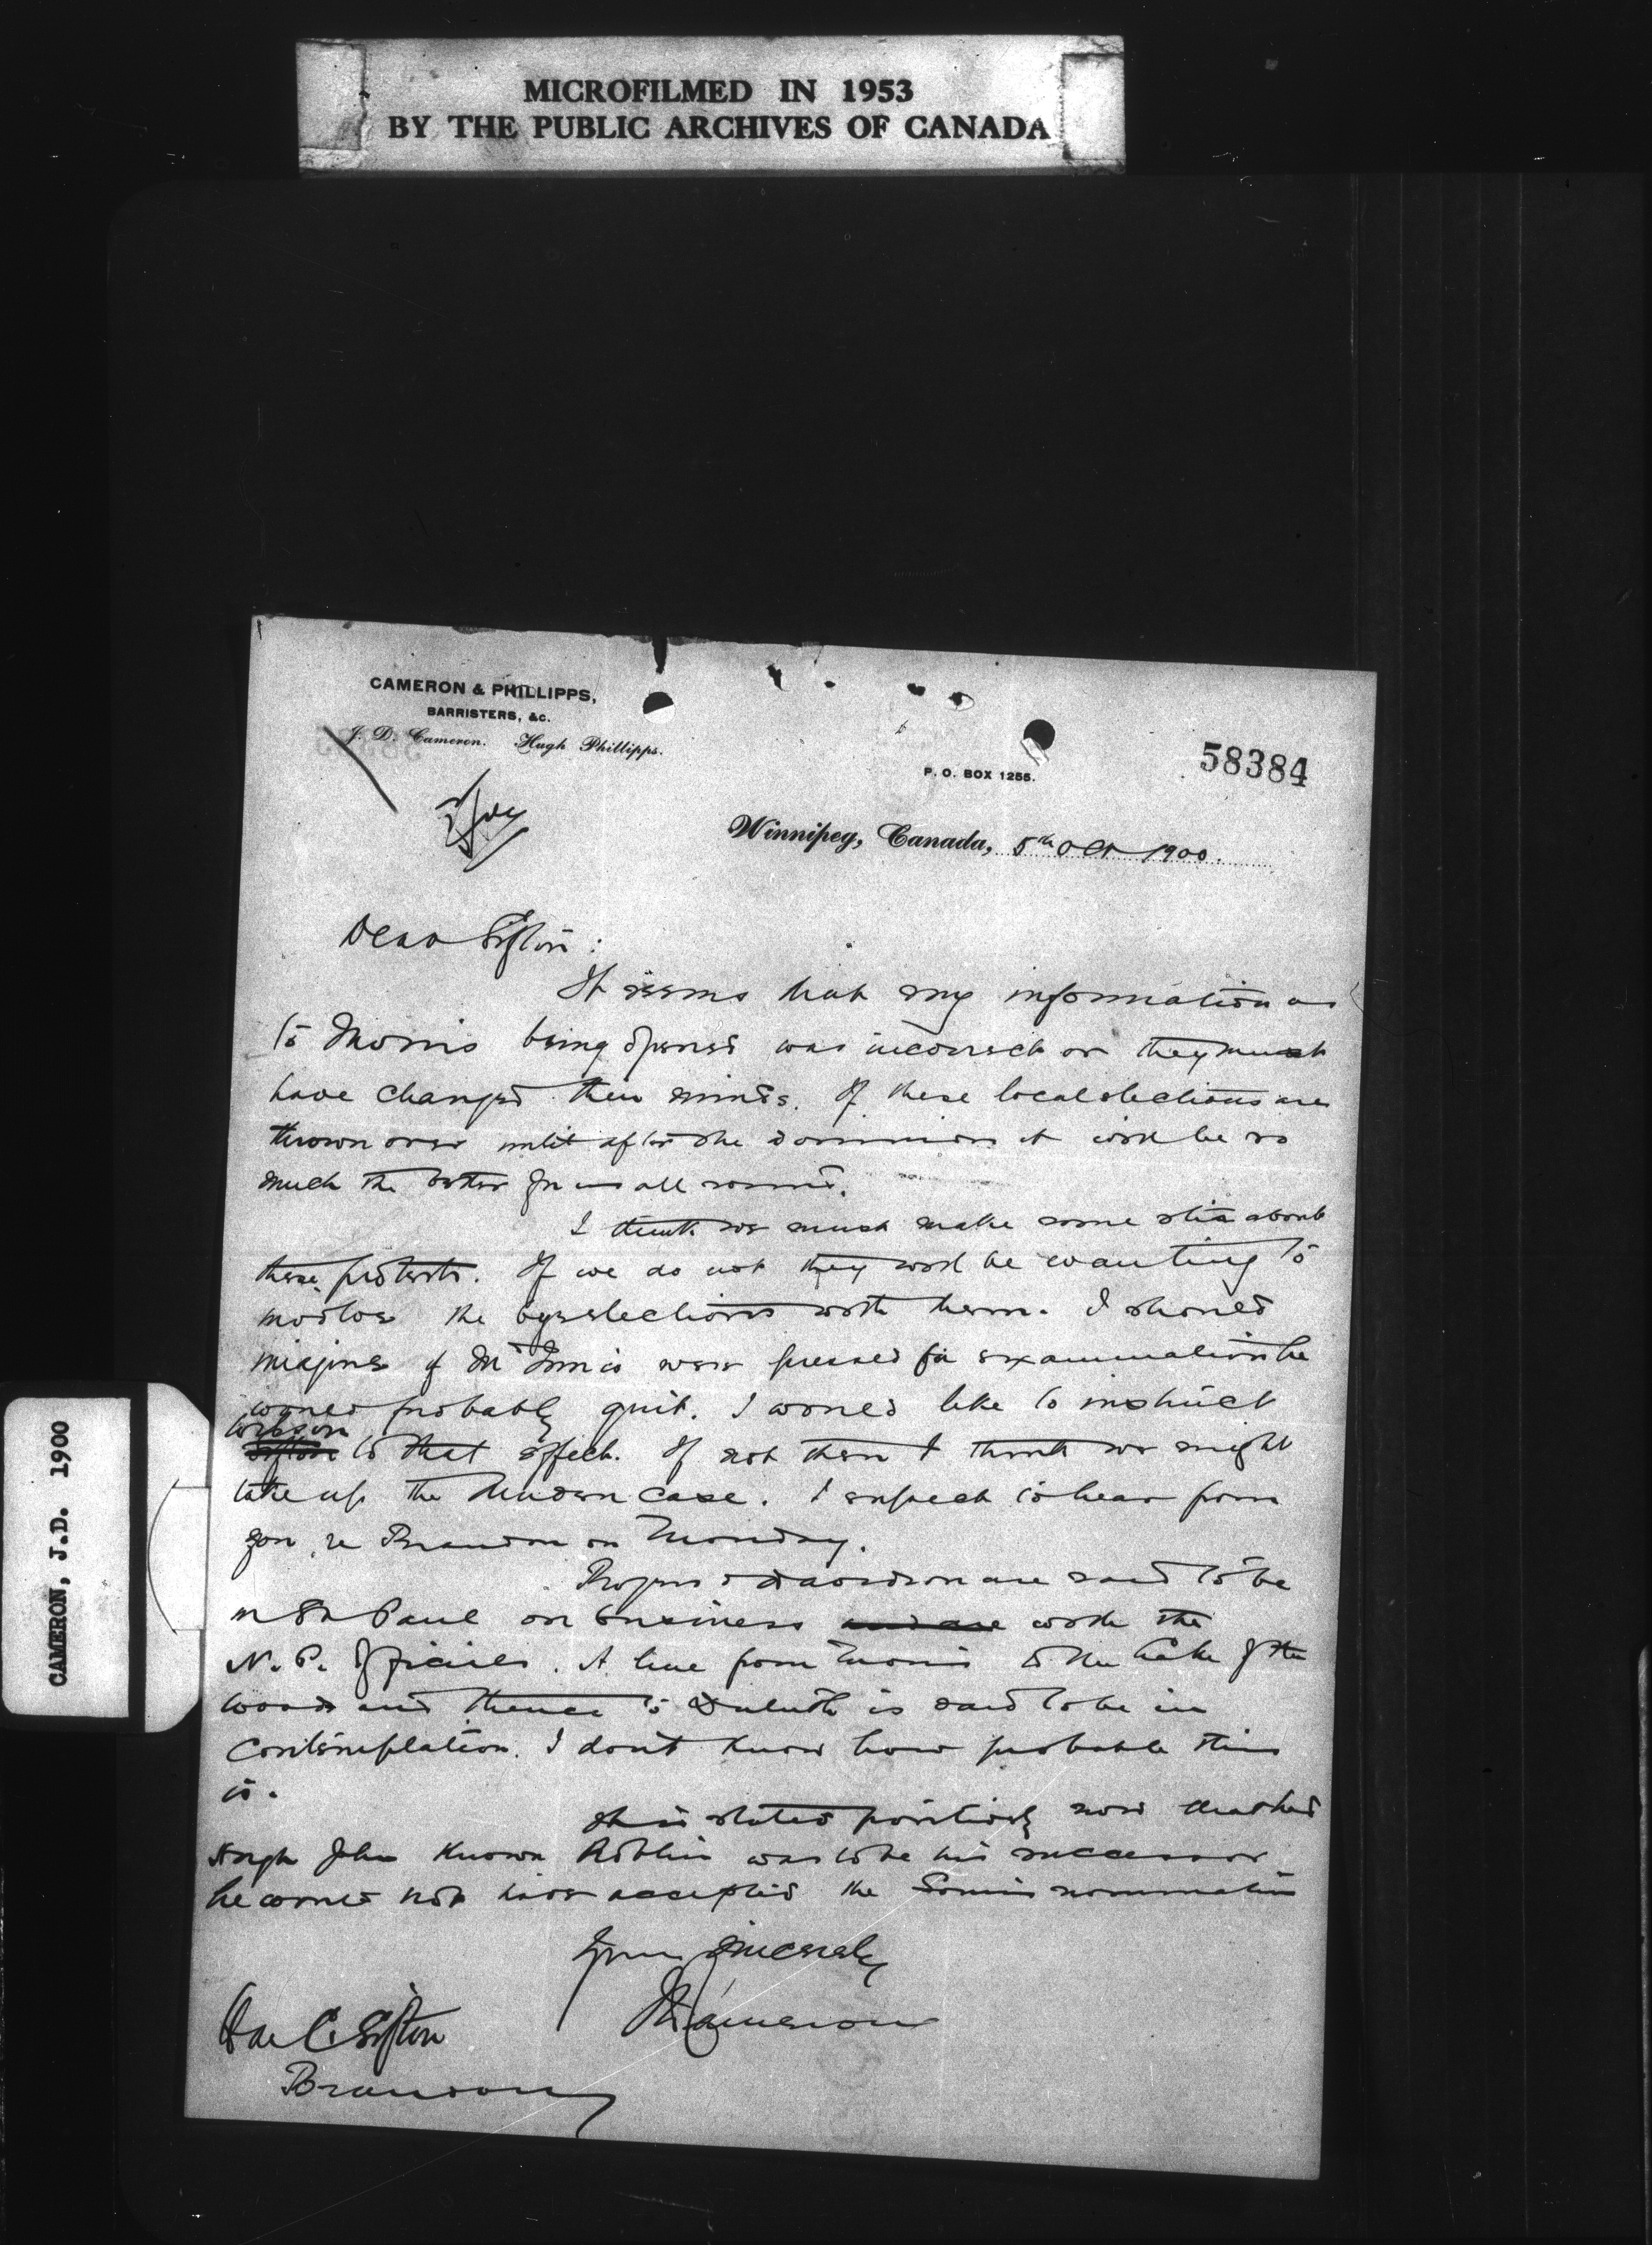 MICROFILMED IN 1953
BY THE PUBLIC ARCHIVES OF CANADA
CAMERON, J.D. 1900
CAMERON & PHILLIPPS,
BARRISTERS, &c.
J. D. Cameron. Hugh Phillipps.
P. O. BOX 1255.
58384
Winnipeg, Canada, 5th Oct 1900.
Dear Sifton:
It seems that my information as
to Morris being opened was incorrect or they must
have changed their minds. If these local elections are
thrown over until after the Dominion it will be so
much the better for us all round.
I think we must make some stir about
these protests. If we do not they will be wanting to
the byeelections with them. I should
imagine if McInnis were pressed for examination he
would probably quit. I would like to instruct
to that effect. If not then I think we might
take up the case. I expect to hear from
you re Brandon on Monday.
Rogers & Davidson are said to be
in St Paul on business and are with the
N. P. officials. A line from Morris to the Lake of the
Woods and thence to Duluth is said to be in
contemplation. I don't know how probable this
is.
It is stated positively now that had
Hugh John known Roblin was to be his successor
he would not have accepted the nomination
Yours sincerely
JDCameron
Hon C. Sifton
Brandon